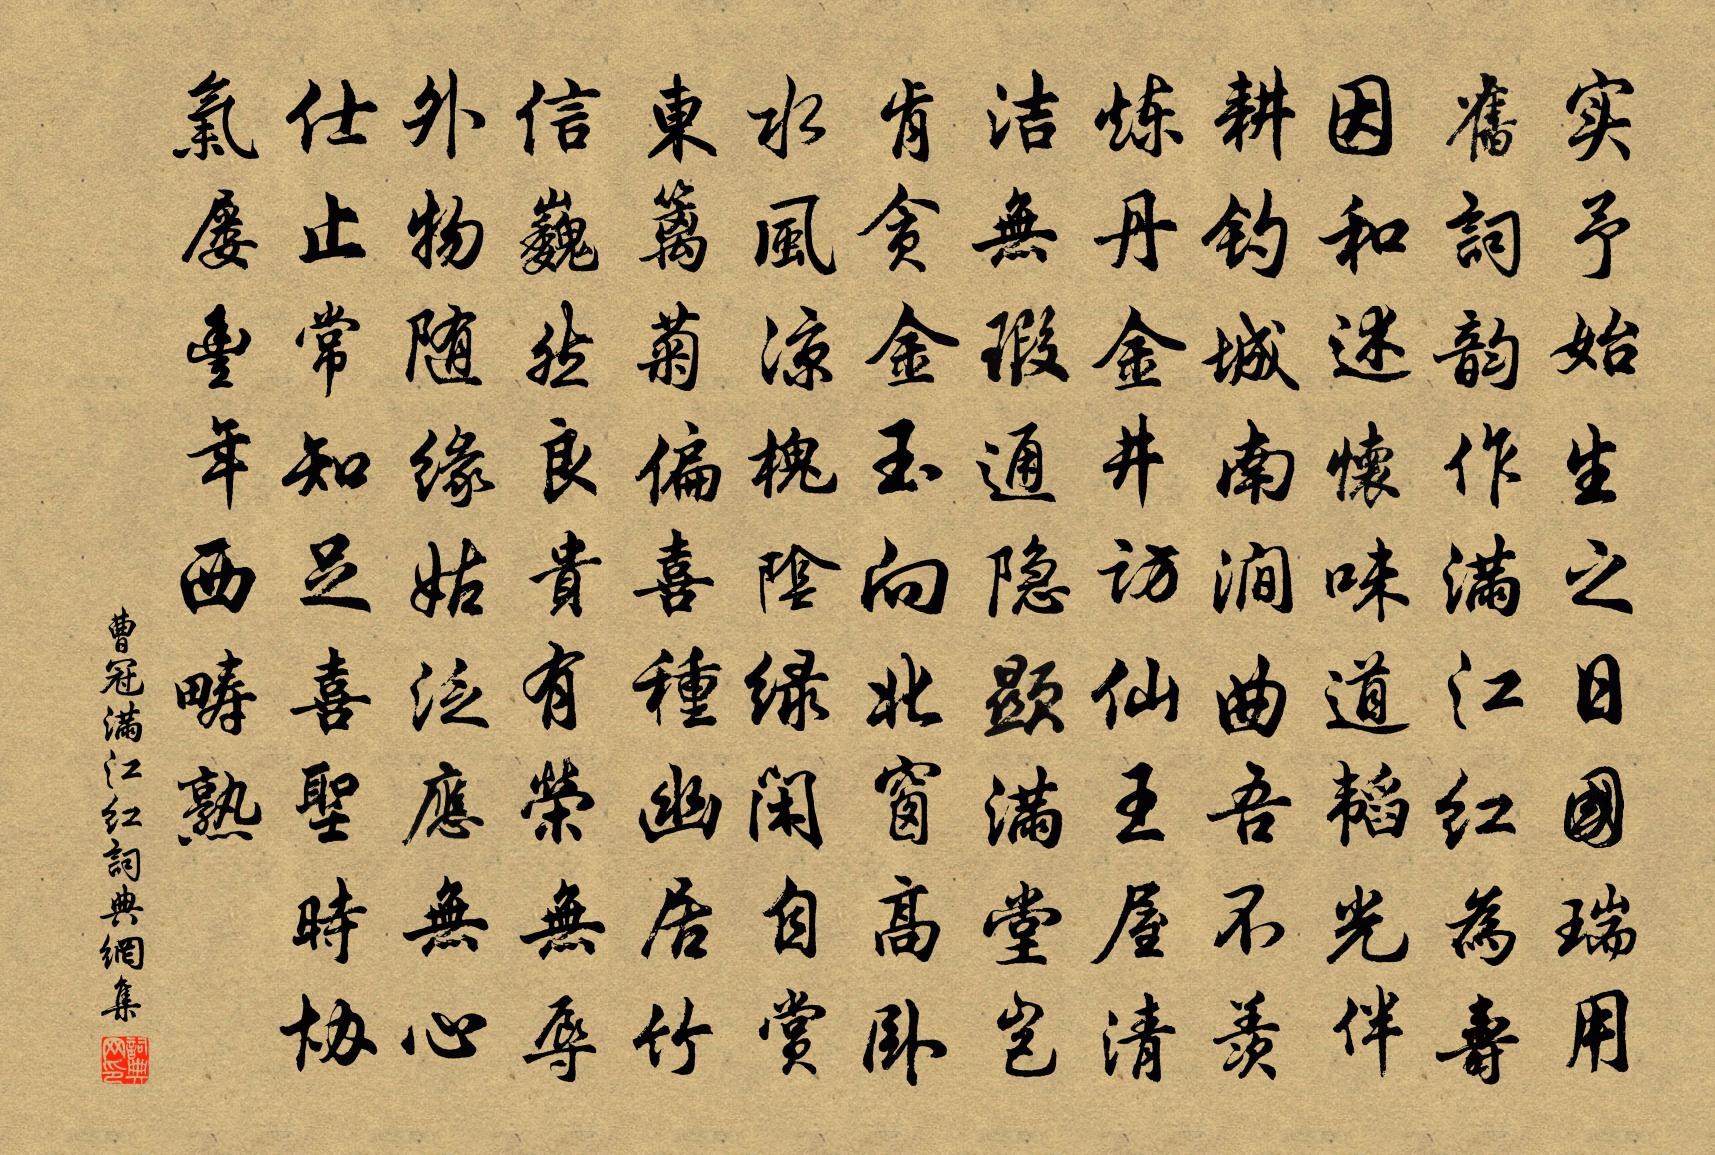 实予始生之日國瑞用
舊詞韵作满江红為壽
因和述懷味道韬光伴
耕钓城南涧曲吾不羡
炼丹金井访仙王屋清
洁無瑕通隐顯满堂岂
肯贪金玉向北窗高卧
水風凉槐陰绿闲自赏
東篱菊偏喜種幽居竹
信巍然良貴有榮無辱
外物随缘姑泛應無心
仕止常知足喜聖時协
氣屡豊年西畴熟
曹冠满江红詞典網集
詞典网印